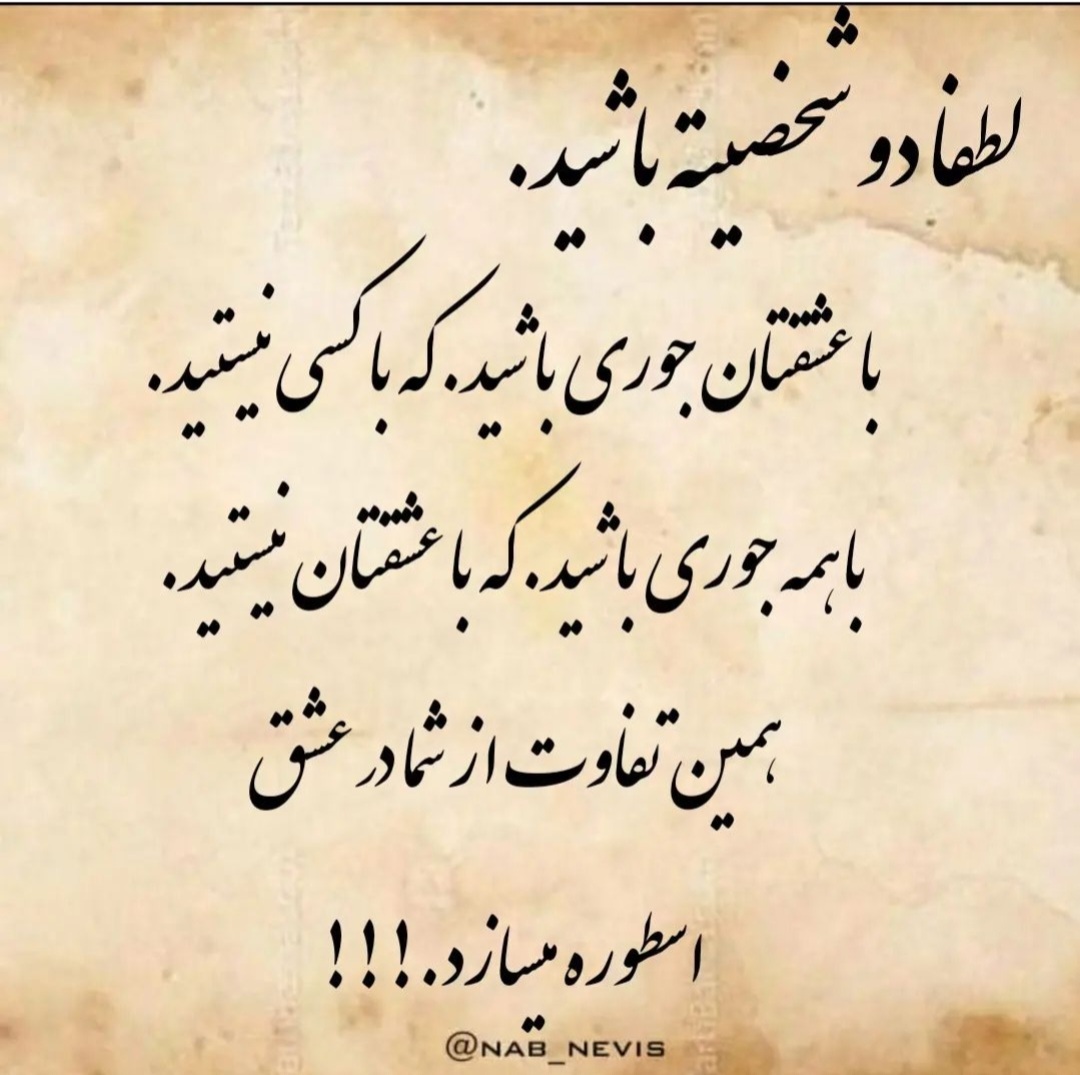 لطفا دو شخصیته باشید.
با عشقتان جوری باشید. که با کسی نیستید.
با همه جوری باشید. که با عشقتان نیستید.
همین تفاوت از شما در عشق
اسطوره میسازد.!!!
@NAB_NEVIS